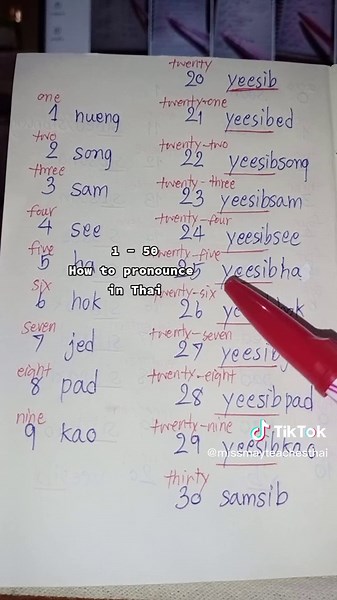 one
1 nueng
two
2 song
three
3 sam
four
4 see
five
5 ha
six
6 hok
seven
7 jed
eight
8 pad
nine
9 kao
twenty
20 yeesib
twenty-one
21 yeesibed
twenty-two
22 yeesibsong
twenty-three
23 yeesibsam
twenty-four
24 yeesibsee
twenty-five
25 yeesibha
twenty-six
26
twenty-seven
27 yeesib
twenty-eight
28 yeesibpad
twenty-nine
29 yeesibkao
thirty
30 samsib
1 - 50
How to pronounce
in Thai
TikTok
@missmayteachesthai